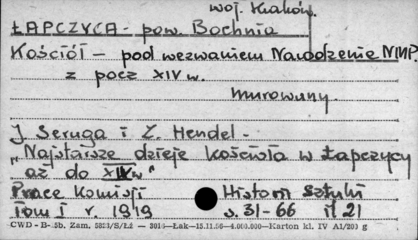 woj. Kraków.
ŁAPCZYCA - pow. Bochnia
Kościół - pod wezwaniem Narodzenie NMP.
z pocz XIV w.
murowany.
J. Seruga i Z. Hendel -
"Najstarsze dzieje kościoła w Łapczycy
aż do XIX w"
Prace Komisji Historii Sztuki
Tom I r. 1919 s. 31-66 il 21
CWD - B-5b. Zam. 5823/S/Łż — 3019—Łak—15.11.56—4.000.000—Karton kl. IV A1/200 g